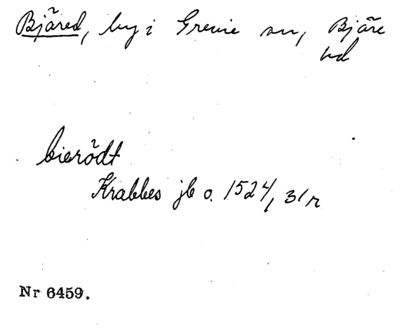 Bjäred, by i Grevie sn, Bjäre
hd
bierödt
Krabbes jb o. 1524, 31r
Nr 6459.